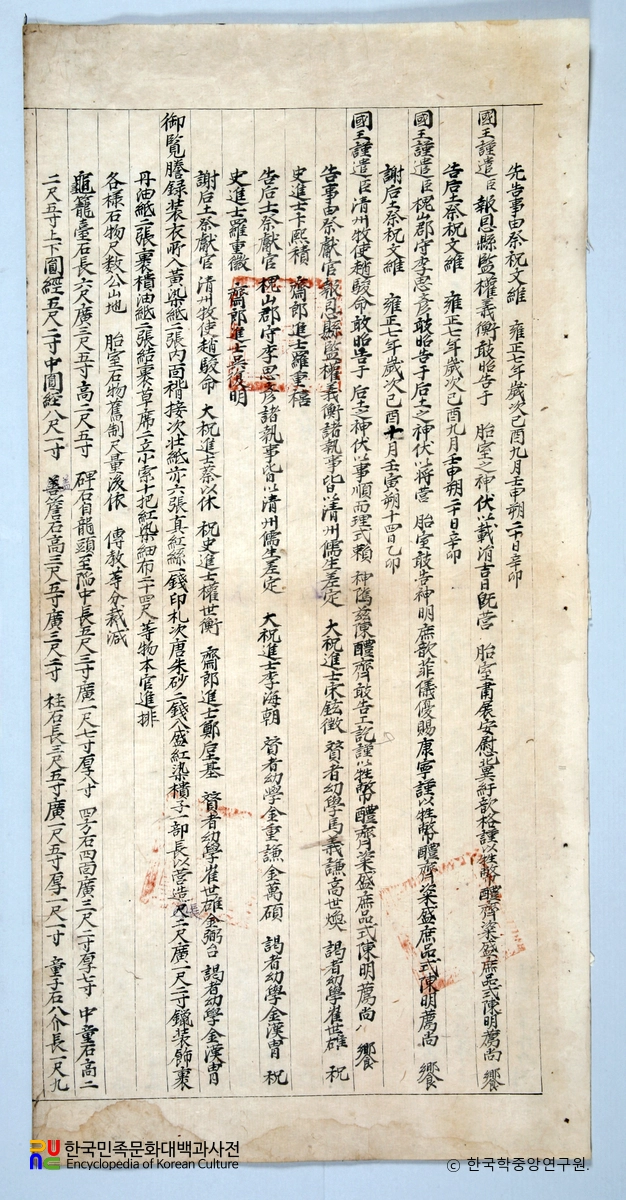 先告事由祭祝文維 雍正七年歲次己酉九月壬申朔二十日辛卯
國王謹遣臣 報恩縣監權義衡敢昭告于 胎室之神伏以載涓吉日旣營 胎室肅展安慰 冀紆歆格謹以牲幣醴齊粢盛庶品式陳明薦尚 饗
告后土祭祝文維 雍正七年歲次己酉九月壬申朔二十日辛卯
國王謹遣臣 槐山郡守李思彦敢昭告于后土之神伏以將營 胎室敢告神明庶歆菲儀優賜康寧謹以牲幣醴齊粢盛庶品式陳明薦尚 饗
謝后土祭祝文維 雍正七年歲次己酉十月壬寅朔十四日乙卯
國王謹遣臣清州牧使趙駿命敢昭告于 后土之神伏以事順而理式賴 神隲玆陳醴齊敢告工訖謹以牲幣醴齊粢盛庶品式陳明薦尚 饗
告事由祭獻官 報恩縣監權義衡諸執事皆以清州儒生差定 大祝進士宋鉉徵 贊者幼學馬義謙高世煥 謁者幼學崔世雄 祝
史進士卞熙積 齋郎進士羅重稽
告后土祭獻官 槐山郡守李思彦諸執事皆以清州儒生差定 大祝進士李海朝 贊者幼學金重謙金萬碩 謁者幼學金漢胄 祝
史進士羅重徵 齋郎進士吳夏明
謝后土祭獻官 清州牧使趙駿命 大祝進士蔡以休 祝史進士權世衡 齋郎進士鄭垕基 贊者幼學崔世雄金弼台 謁者幼學金漢胄
御覧謄録装衣所入黃染紙二張內面楮接次壮紙亦六張真紅絲一錢印札次唐朱砂二錢入盛紅染樻子一部長以营造尺二尺廣一尺二寸鑞装飾裹
丹油紙二張裹樻油紙二張結裹草席二立小索十把紅染細布二十四尺等物本官進排
各様石物尺数公山地 胎室石物舊制尺量後依 傳教等分裁減
龜籠臺石長六尺廣三尺五寸高二尺五寸 碑石自龍頭至陷中長五尺二寸廣一尺七寸厚八寸 四方石四面廣三尺二寸厚七寸 中童石高二
二尺五寸上下圓經五尺二寸中圓經八尺一寸 簷石高三尺五寸廣三尺二寸 柱石長三尺五寸廣一尺五寸厚一尺一寸 童子石八介長一尺九
한국민족문화대백과사전
Encyclopedia of Korean Culture
© 한국학중앙연구원.